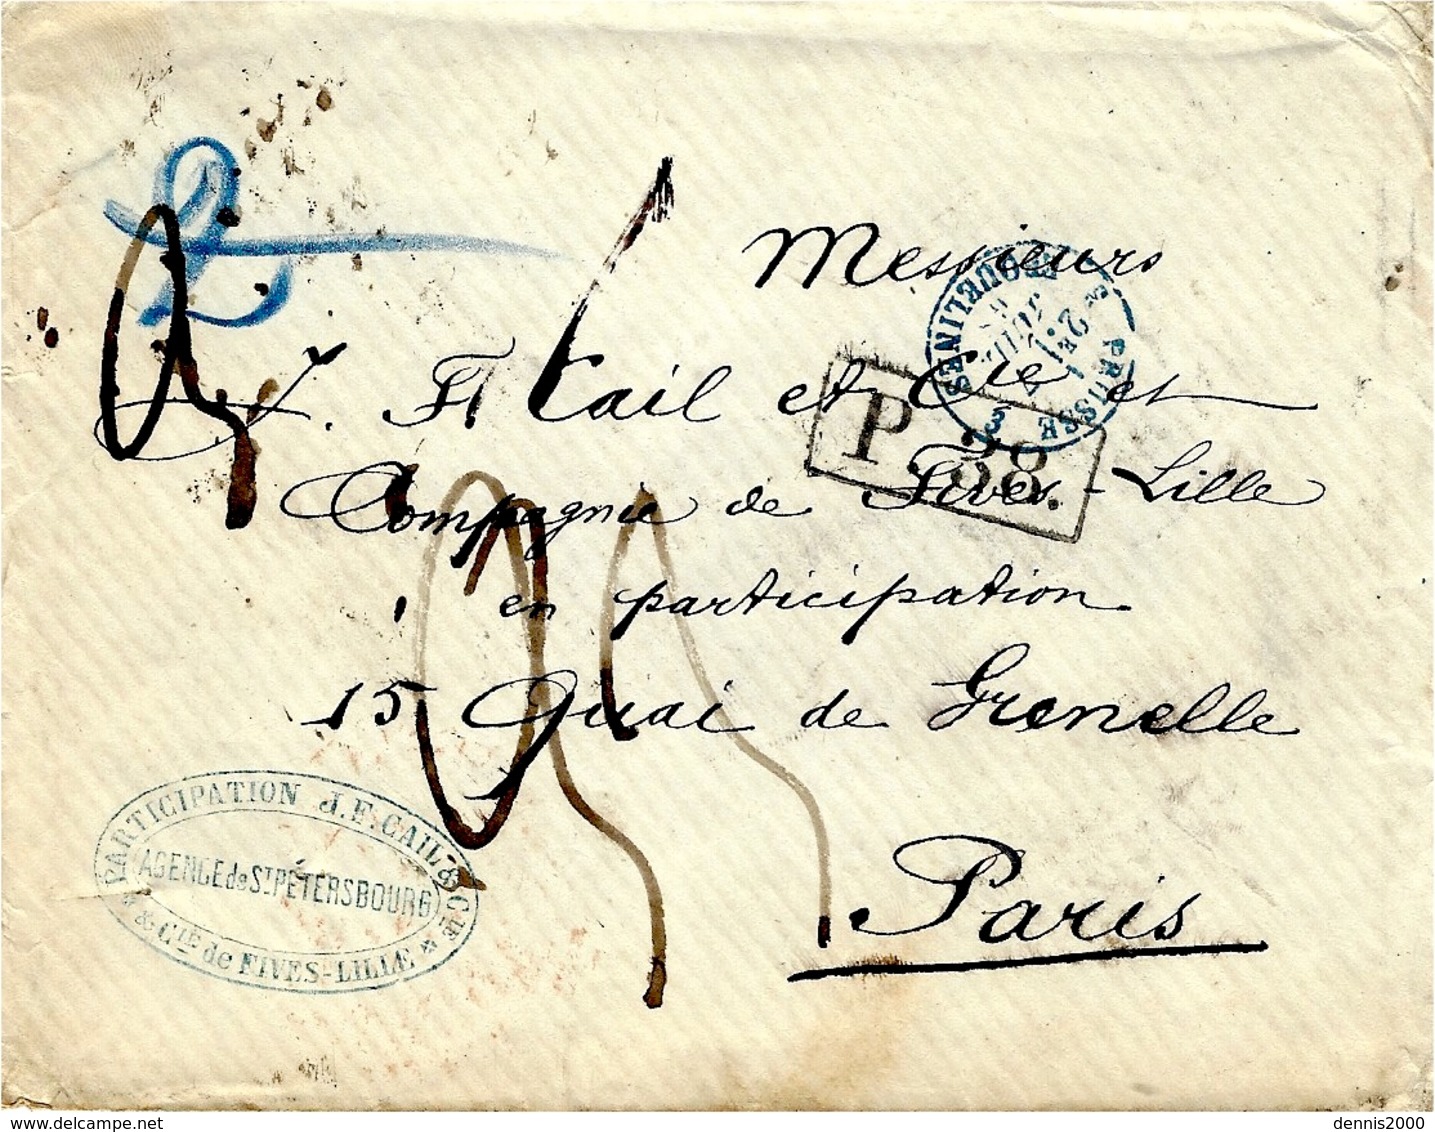 Messieurs
J. F. Cail et Cie et
Compagnie de Fives-Lille
en participation
15 Quai de Grenelle
Paris
P.38.
PRUSSE
ERQUELINES
3
PARTICIPATION J.F. CAIL & CIE
AGENCE de ST PÉTERSBOURG
& CIE de FIVES-LILLE
delcampe.net
dennis2000